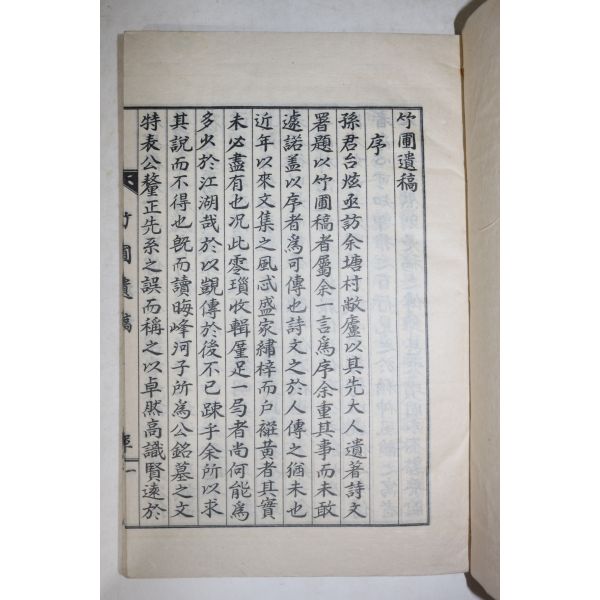 竹圃遺稿
序
孫君台炫亟訪余塘村敝廬以其先大人遺著詩文
署題以竹圃稿者屬余一言爲序余重其事而未敢
遽諾盖以序者爲可傳也詩文之於人傳之猶未也
近年以來文集之風忒盛家繡梓而戶褫黄者其實
未必盡有也况此零瑣收輯厪足一局者尚何能爲
多少於江湖哉於以覬傳於後不已踈乎余所以求
其說而不得也旣而讀晦峰河子所爲公銘墓之文
特表公釐正先系之誤而稱之以卓然高識賢遠於
竹圃遺稿
序
一